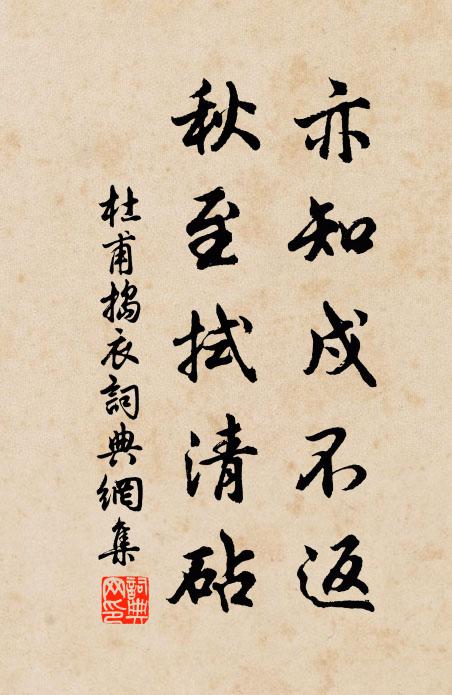 亦知戍不返
秋至拭清砧
杜甫搗衣詞典網集
詞典
网印